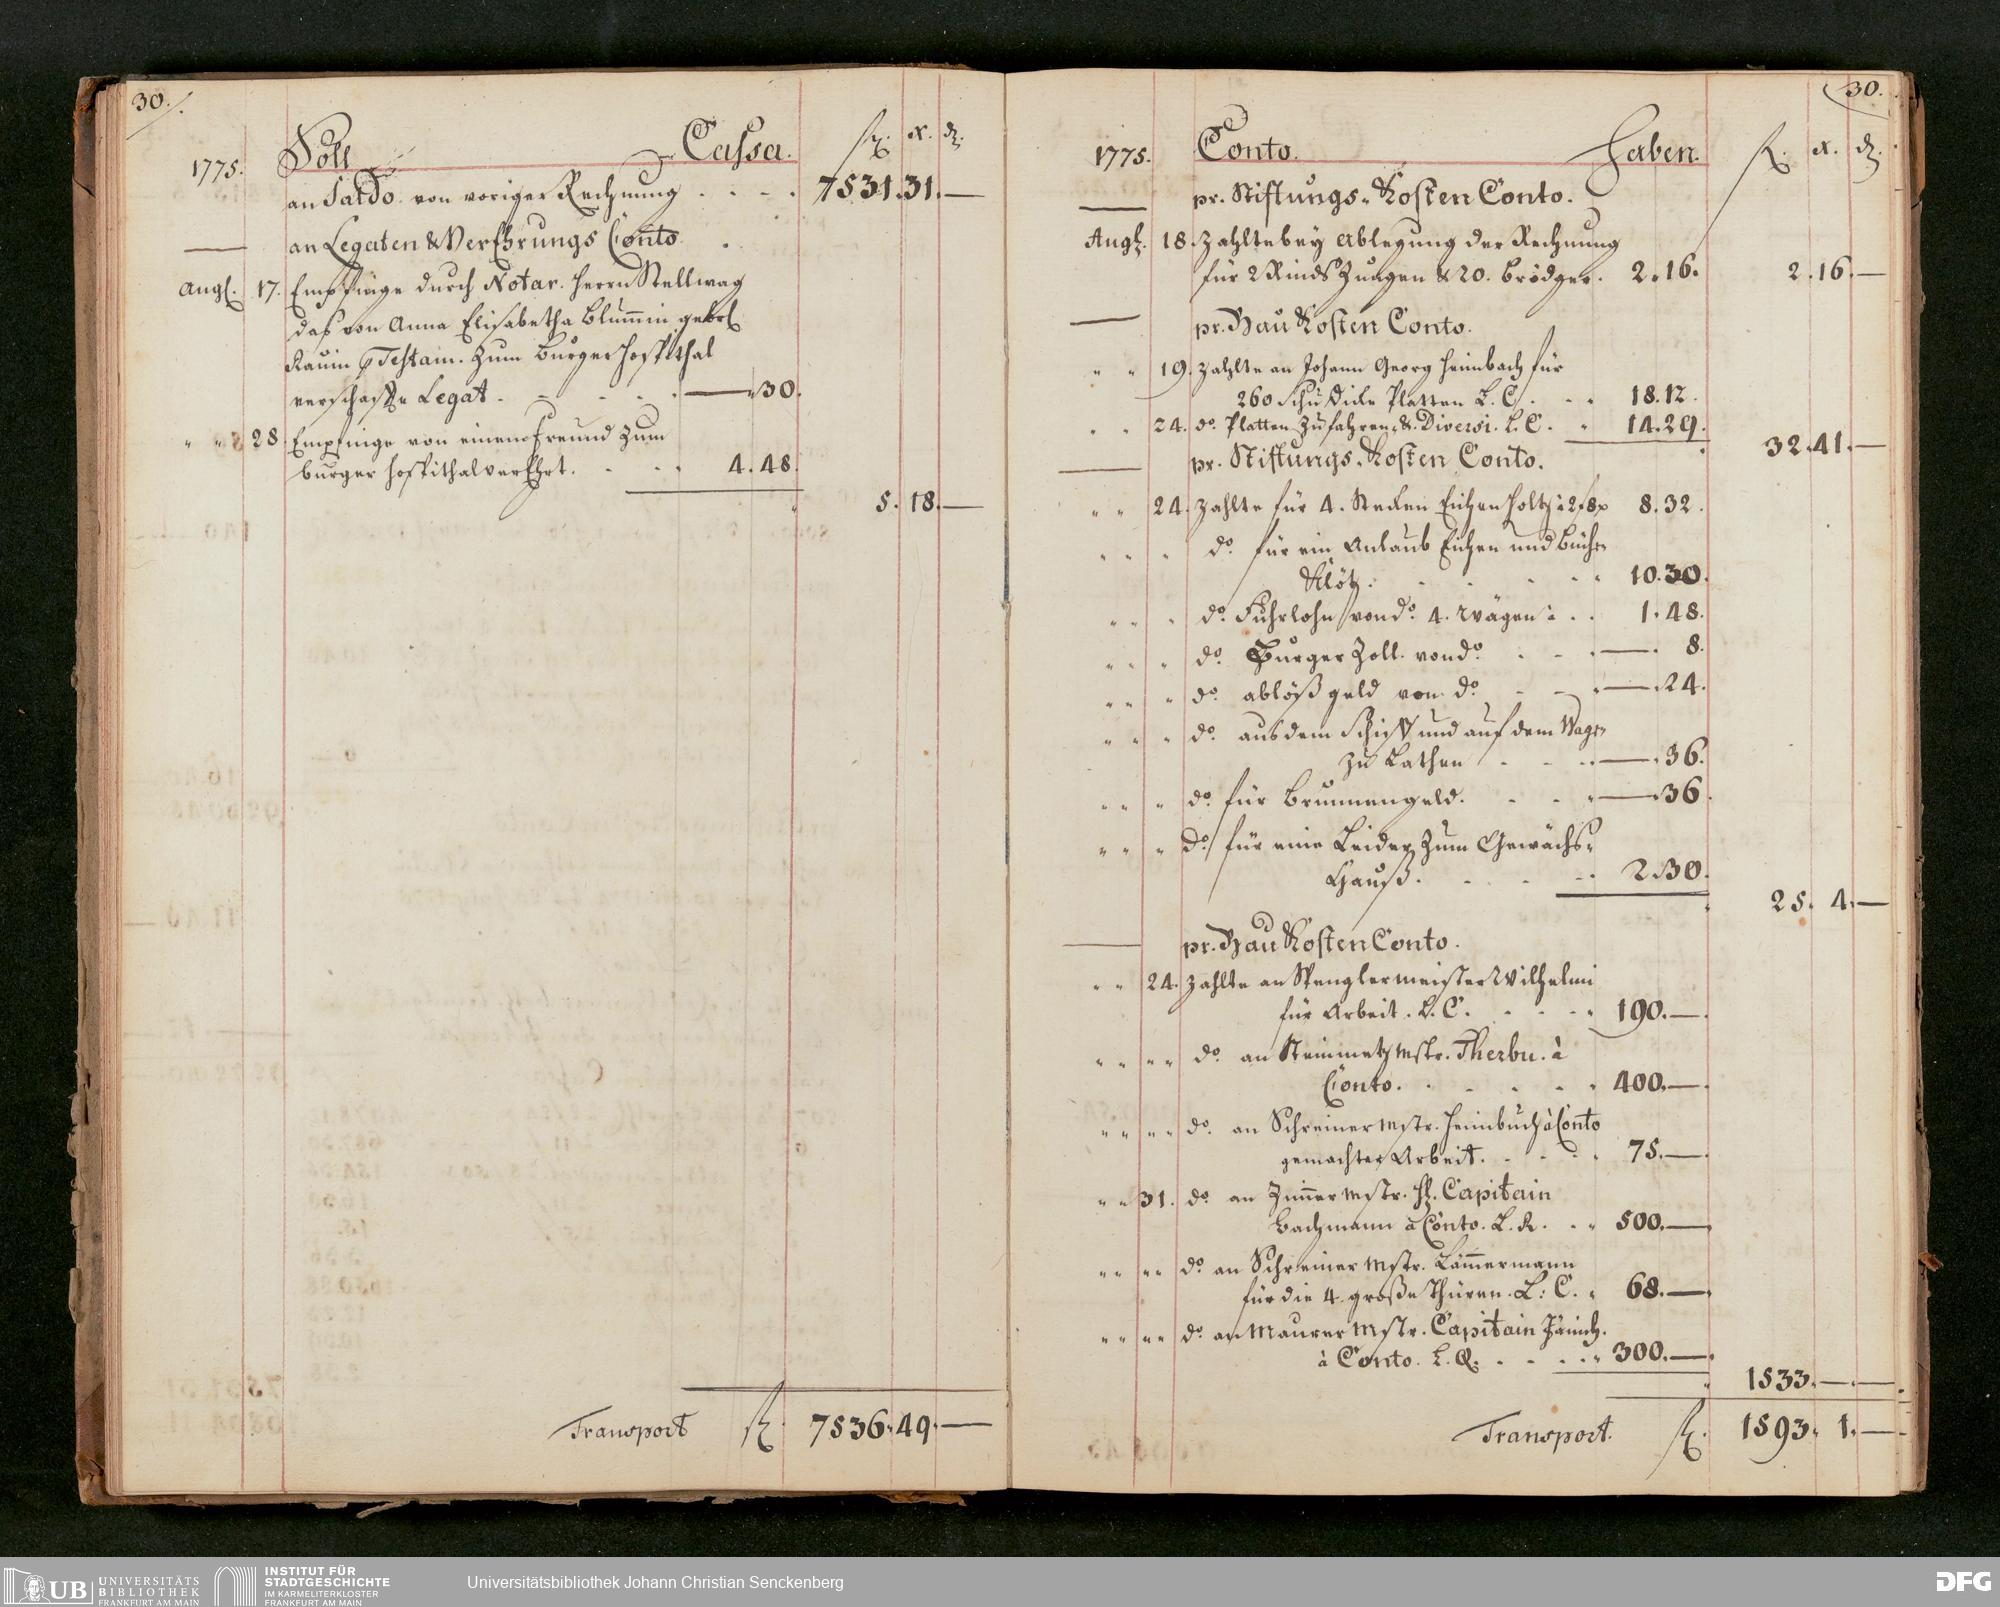 30.
1775. Soll Cassa. fl. x. d.
an Saldo von voriger Rechnung . . . . 7531. 31. —
an Legaten & Verehrungs Conto .
Augst. 17. Empfinge durch Notar. Herrn Stellwag
das von Anna Elisabetha Blumin
Testam. zum burger hospithal
verschaffte Legat . . . . — 30.
" " 28. Empfinge von einem Freund zum
burger hospithal verEhrt . . . . 4. 48.
5. 18. —
Transport fl. 7536. 49. —
30.
1775. Conto. Haben. fl. x. d.
pr. Stiftungs-Kosten Conto.
Augst. 18. zahlte bey Ablegung der Rechnung
für 2 Rinds Zungen & 20. brödger. 2. 16. 2. 16. —
pr. Bau Kosten Conto.
" " 19. zahlte an Johann Georg Heimbach für
260 Schu dicke Platten L. C. . . 18. 12.
" " 24. do. Platten zu fahren, & Diversi. L. C. " 14. 29.
32. 41. —
pr. Stiftungs-Kosten Conto.
" " 24. zahlte für 4. Stecken Eichen holtz à 2f 8x 8. 32.
" " " do. für ein Anlaub Eichen und büchen
Klötz. . . . . 10. 30.
" " " do. Fuhrlohn von do. 4. Wägen : . . 1. 48.
" " " do. Burger Zoll. von do. . . . — 8.
" " " do. ablöß geld von do. . . — 24.
" " " do. aus dem Schiff und auf dem Wagen
zu Lathen . . . . — 36.
" " " do. für Brunnengeld. . . . — 36.
" " " do. für eine Leider zum Gewächs-
Hauß. . . . . 2. 30.
25. 4. —
pr. Bau Kosten Conto.
" " 24. zahlte an Spenglermeister Wilhelmi
für Arbeit. L. C. . . . 190. —
" " " " do. an Steinmetz Mstr. Therbu. à
Conto. . . . . 400. —
" " " " do. an Schreiner Mstr. Heimbuch à Conto
gemachter Arbeit. . . . 75. —
" " 31. do. an Zimer Mstr. H. Capitain
Bachmann à Conto. L. R. . . 500. —
" " " " do. an Schreiner Mstr. Lämermann
für die 4. große Thüren. L. C. " 68. —
" " " " do. an Maurer Mstr. Capitain Jänich.
à Conto. L. Q. . . . 300. —
1533. — . —
Transport. fl. 1593. 1. —
UB UNIVERSITÄTS
BIBLIOTHEK
FRANKFURT AM MAIN
INSTITUT FÜR
STADTGESCHICHTE
IM KARMELITERKLOSTER
FRANKFURT AM MAIN
Universitätsbibliothek Johann Christian Senckenberg
DFG